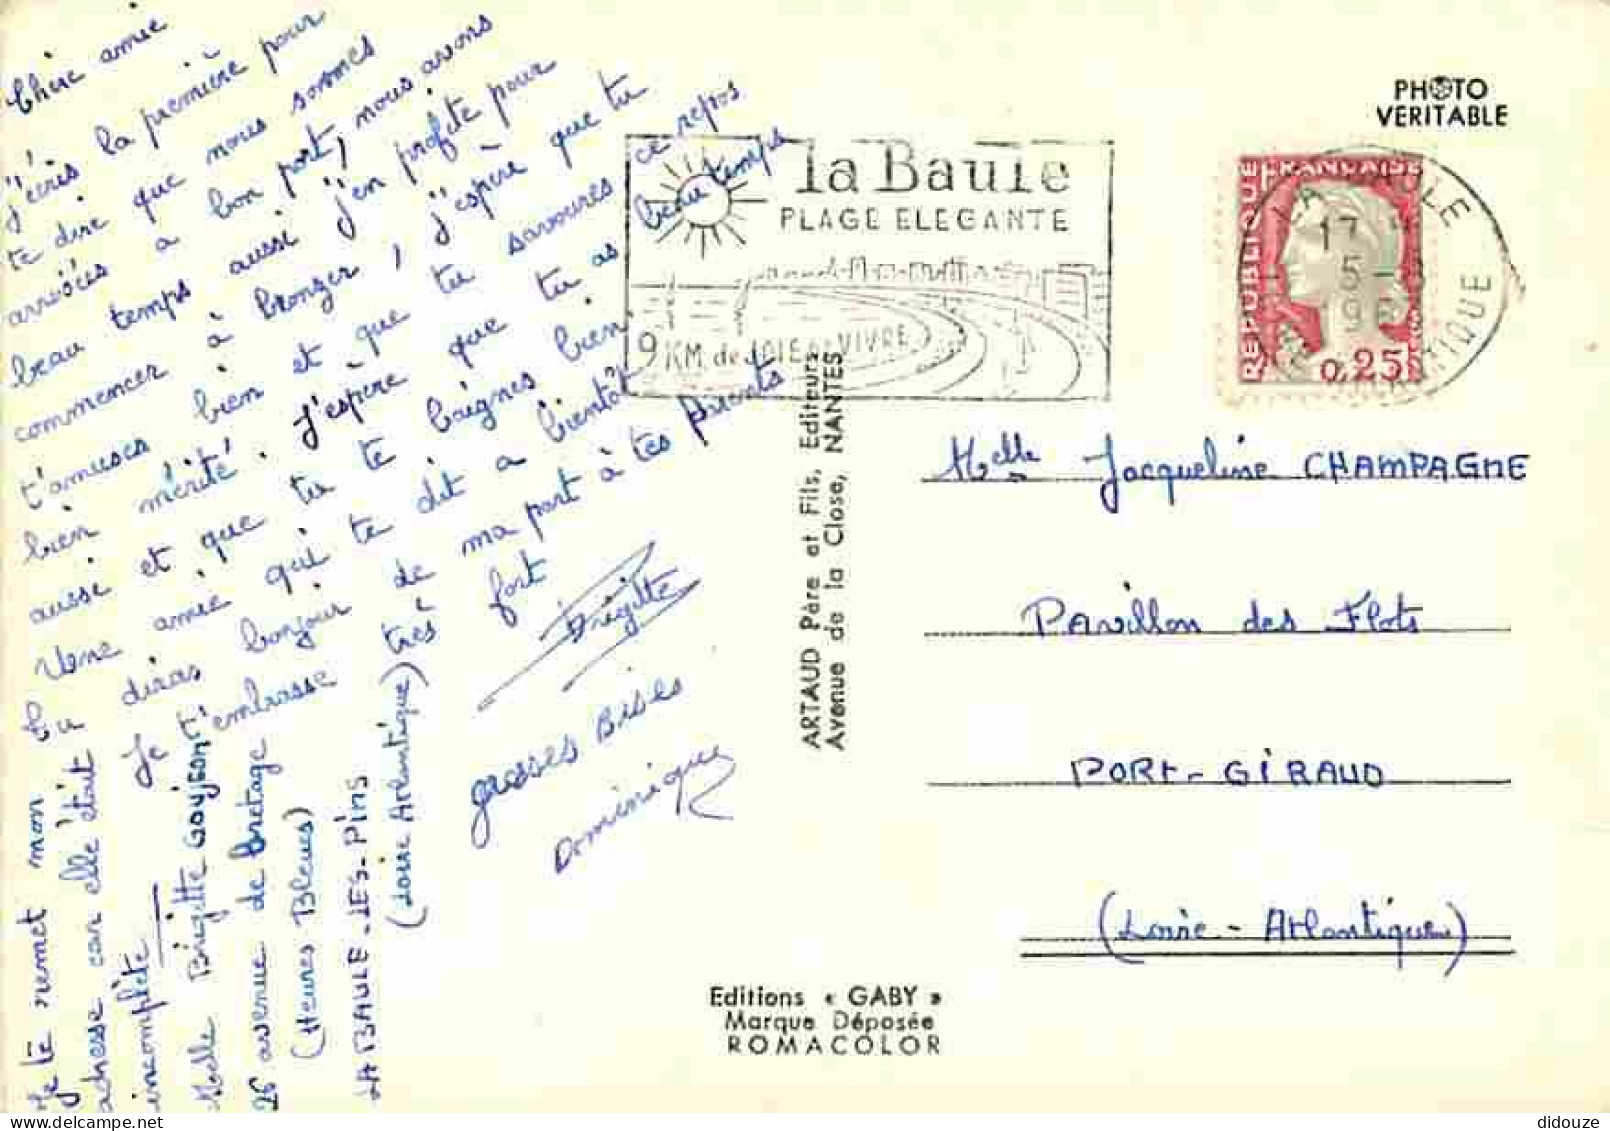 Chère amie
j'écris la première pour
te dire que nous sommes
arrivées a bon port, nous avons
beau temps aussi j'en profite pour
commencer à bronzer, j'espère que tu
t'amuses bien et que tu savoures ce repos
bien mérité. J'espère que tu as beau temps
aussi et que tu te baignes bien.
Une amie qui te dit a bientôt
tu diras bonjour de ma part à tes parents
Je t'embrasse très fort
Brigitte
grosses Bises
Dominique
Je te remet mon
adresse car elle était
incomplète
Melle Brigitte GOUJEON
26 avenue de Bretage
(Heures Bleues)
LA BAULE-LES-PINS
(Loire Atlantique)
la Baule
PLAGE ELEGANTE
9 KM. de JOIE DE VIVRE
PHOTO
VERITABLE
REPUBLIQUE
FRANÇAISE
0,25
LA BAULE
17
5
ATLANTIQUE
ARTAUD Père et Fils, Editeurs
Avenue de la Close, NANTES
Melle Jacqueline CHAMPAGNE
Pavillon des Flots
PORT-GIRAUD
(Loire-Atlantique)
Editions « GABY »
Marque Déposée
ROMACOLOR
didouze